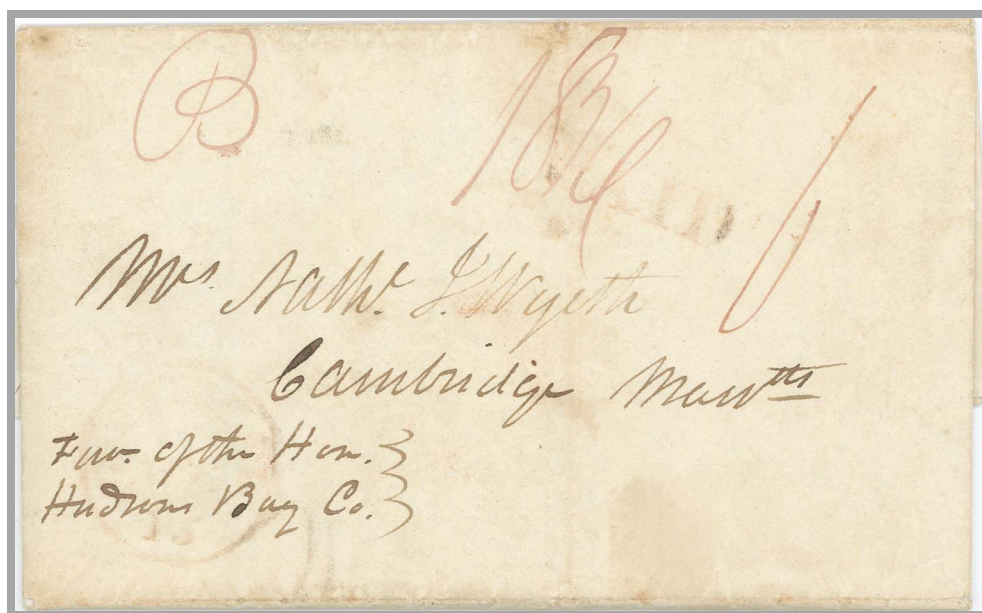 B 18¾ 6
PAID
Mrs. Nathl. J. Wyeth
Cambridge Masstts
Favr. of the Hon. }
Hudsons Bay Co. }